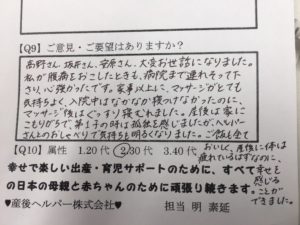 【Q9】ご意見・ご要望はありますか?
高野さん、坂井さん、安原さん、大変お世話になりました。
私が腹痛をおこしたときも、病院まで連れそって下
さり、心強かったです。家事以上に、マッサージがとても
気持ちよく、入院中はなかなか寝つけなかったのに、
マッサージ後はぐっすり寝むれました。産後は家に
こもりがちで、第1子の時は孤独を感じましたが、ヘルパー
さんとのおしゃべりで気持ちも明るくなりました。ご飯も全て
おいしく、産後に体は
疲れているはずなのに、
幸せと
感じる
ことが
できました。
【Q10】属性 1.20代 2.30代 3.40代
幸せで楽しい出産・育児サポートのために、すべて
の日本の母親と赤ちゃんのために頑張り続きます。
♥産後ヘルパー株式会社♥ 担当 明 素延